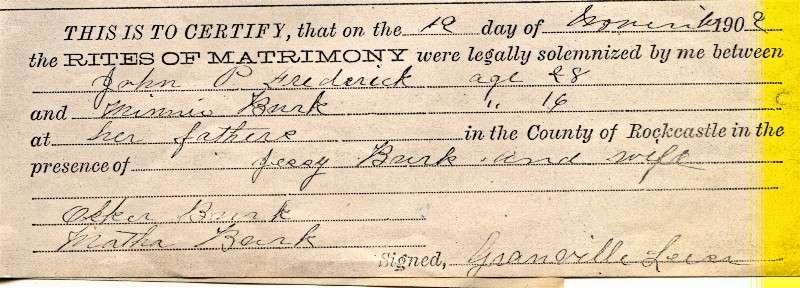 THIS IS TO CERTIFY, that on the 12 day of November 1902
the RITES OF MATRIMONY were legally solemnized by me between
John P Frederick age 28
and Minnie Burk " 16
at her fathers in the County of Rockcastle in the
presence of Jessy Burk and wife
Osker Burk
Matha Burk
Signed, Granville